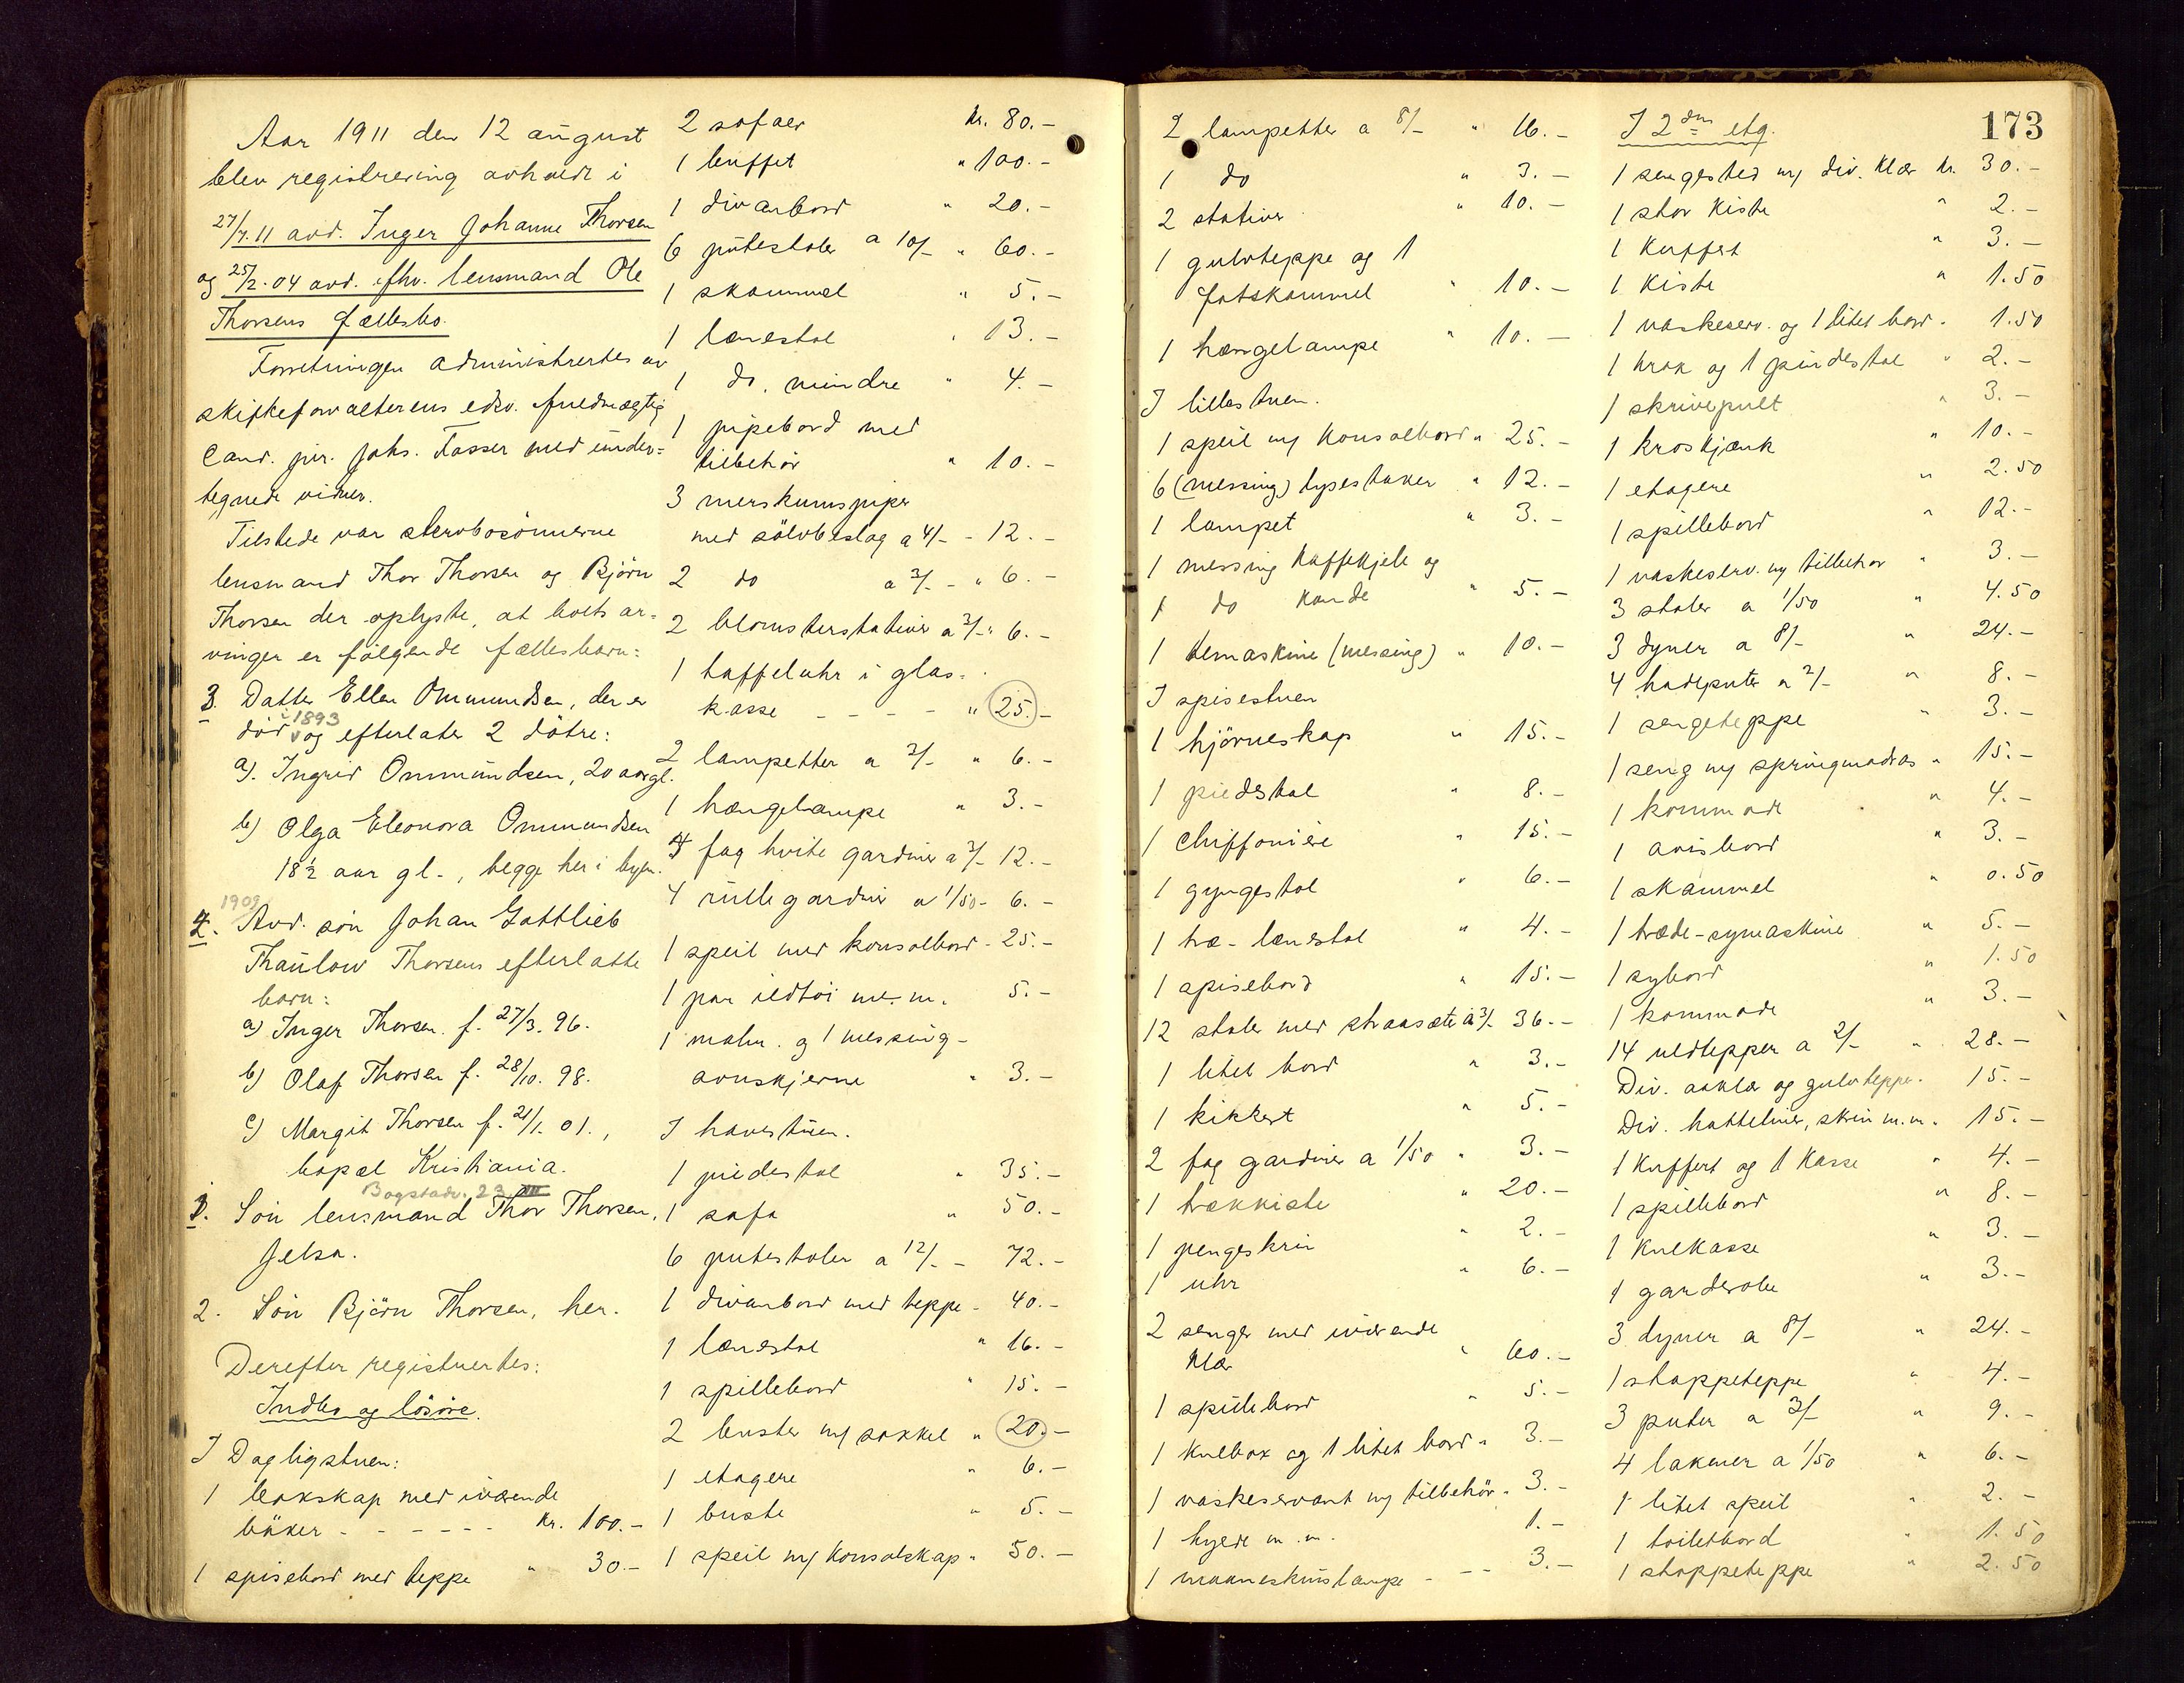 Aar 1911 den 12 august
blev registrering avholdt i
27/7.11 avd. Inger Johanne Thorsen
og 25/2.04 avd. fhv. lensmand Ole
Thorsens fællesbo.
Forretningen administrertes av
skifteforvalterens edsv. fuldmægtig
Cand. jur. Johs. Fasser med under=
tegnede vidner.
Tilstede var sterbosönnerne
lensmand Thor Thorsen og Björn
Thorsen der oplyste, at boets ar=
vinger er følgende fællesbarn:
3. Datter Ellen Ommundsen, der er
död i 1893 og efterlater 2 dötre:
a). Ingrid Ommundsen, 20 aar gl.
b) Olga Eleonora Ommundsen
18½ aar gl-, begge her i byen.
1909
4. Avd. sön Johan Gottlieb
Thaulow Thorsens efterlatte
barn:
a) Inger Thorsen f. 27/3. 96.
b) Olaf Thorsen f. 28/10. 98.
c) Margit Thorsen f. 21/1. 01.,
bopæl Kristiania.
Bogstadv. 23 III
1. Sön lensmand Thor Thorsen,
Jelsa.
2. Sön Björn Thorsen, her.
Derefter registrertes:
Indbo og lösöre.
I Dagligstuen:
1 bokskap med iværende
böker - - - - - - kr. 100.-
1 spisebord med teppe " 30.-
2 sofaer kr. 80.-
1 buffet " 100.-
1 divanbord " 20.-
6 putestoler a 10/- " 60.-
1 skammel " 5.-
1 lænestol " 13.-
1 do. mindre " 4.-
1 pipebord med
tilbehör " 10.-
3 merskumspiper
med sölvbeslag a 4/- - 12.-
2 do a 3/- " 6.-
2 blomsterstativer a 3/- " 6.-
1 taffeluhr i glas-
kasse - - - - " 25.-
2 lampetter a 3/- " 6.-
1 hængelampe " 3.-
4 fag hvite gardiner a 3/- 12.-
4 rullegardiner a 1/50 - 6.-
1 speil med konsolbord - 25.-
1 par ildtöi m.m. 5.-
1 mahn. og 1 messing-
ovnskjerne " 3.-
I havestuen.
1 piedestal " 35.-
1 sofa " 50.-
6 putestoler a 12/- - 72.-
1 divanbord med teppe - 40.-
1 lænestol " 16.-
1 spillebord " 15.-
2 buster m/ sokkel " 20.-
1 etagere " 6.-
1 buste " 5.-
1 speil m/ konsolskap " 50.-
173
2 lampetter a 8/- " 16.-
1 do " 3.-
2 stativer " 10.-
1 gulvteppe og 1
fotskammel " 10.-
1 hængelampe " 10.-
I lillestuen.
1 speil m/ konsolbord " 25.-
6 (messing) lysestaker " 12.-
1 lampet " 3.-
1 messing kaffekjele og
1 do kande " 5.-
1 temaskine (messing) " 10.-
I spisestuen
1 hjörneskap " 15.-
1 piedestal " 8.-
1 chiffoniere " 15.-
1 gyngestol " 6.-
1 træ-lænestol " 4.-
1 spisebord " 15.-
12 stoler med straasæte à 3/- 36.-
1 litet bord " 3.-
1 kikkert " 5.-
2 fag gardiner a 1/50 " 3.-
1 trækkiste " 20.-
1 pengeskrin " 2.-
1 uhr " 6.-
2 senger med iværende
klær " 60.-
1 spillebord " 5.-
1 kulbox og 1 litet bord " 3.-
1 vaskeservant m/ tilbehör " 3.-
1 hylde m.m. 1.-
1 maaneskinslampe - - - 3.-
I 2den etg.
1 sengested m/ div. klær kr. 30.-
1 stor kiste " 2.-
1 kuffert " 3.-
1 kiste " 1.50
1 vaskeserv. og 1 litet bord " 1.50
1 krak og 1 pindestol " 2.-
1 skrivepult " 3.-
1 kroskjænk " 10.-
1 etagere " 2.50
1 spillebord " 12.-
1 vaskeserv. m/ tilbehör " 3.-
3 stoler a 1/50 " 4.50
3 dyner a 8/- " 24.-
4 hodeputer a 2/- " 8.-
1 sengeteppe " 3.-
1 seng m/ springmadras " 15.-
1 kommode " 4.-
1 avisbord " 3.-
1 skammel " 0.50
1 træde-symaskine " 5.-
1 sybord " 1.50
1 kommode " 3.-
14 uldtepper a 2/- " 28.-
Div. aaklær og gulvtepper " 15.-
Div. hatteliner, skrin m.m. " 15.-
1 kuffert og 1 kasse " 4.-
1 spillebord " 8.-
1 kulkasse " 3.-
1 garderobe " 3.-
3 dyner a 8/- " 24.-
1 stoppeteppe " 4.-
3 puter a 3/- " 9.-
4 lakener a 1/50 " 6.-
1 litet speil " 2.-
1 toiletbord " 1.50
1 stoppeteppe " 2.50